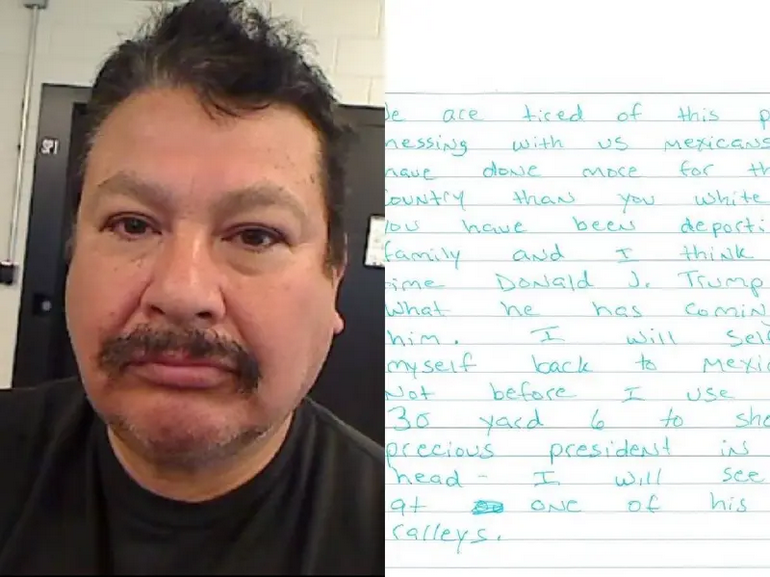 SPI
e are tired of this p
nessing with us mexicans
have done more for th
ountry than you white
ou have been deporti
family and I think
ime Donald J. Trump
what he has comin
him. I will sel
myself back to mexic
Not before I use
30 yard 6 to sho
precious president in
head - I will see
at one of his
ralleys.